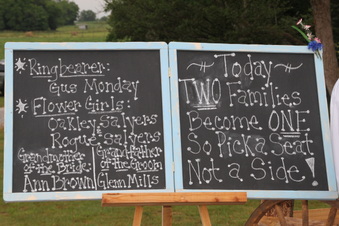 Ringbearer:
Gus Monday
Flower Girls:
Oakley Salyers
Rogue Salyers
Grandmother of the Bride
Ann Brown
Grandfather of the Groom
Glenn Mills
Today
TWO Families
Become ONE
So Pick a Seat
Not a Side!